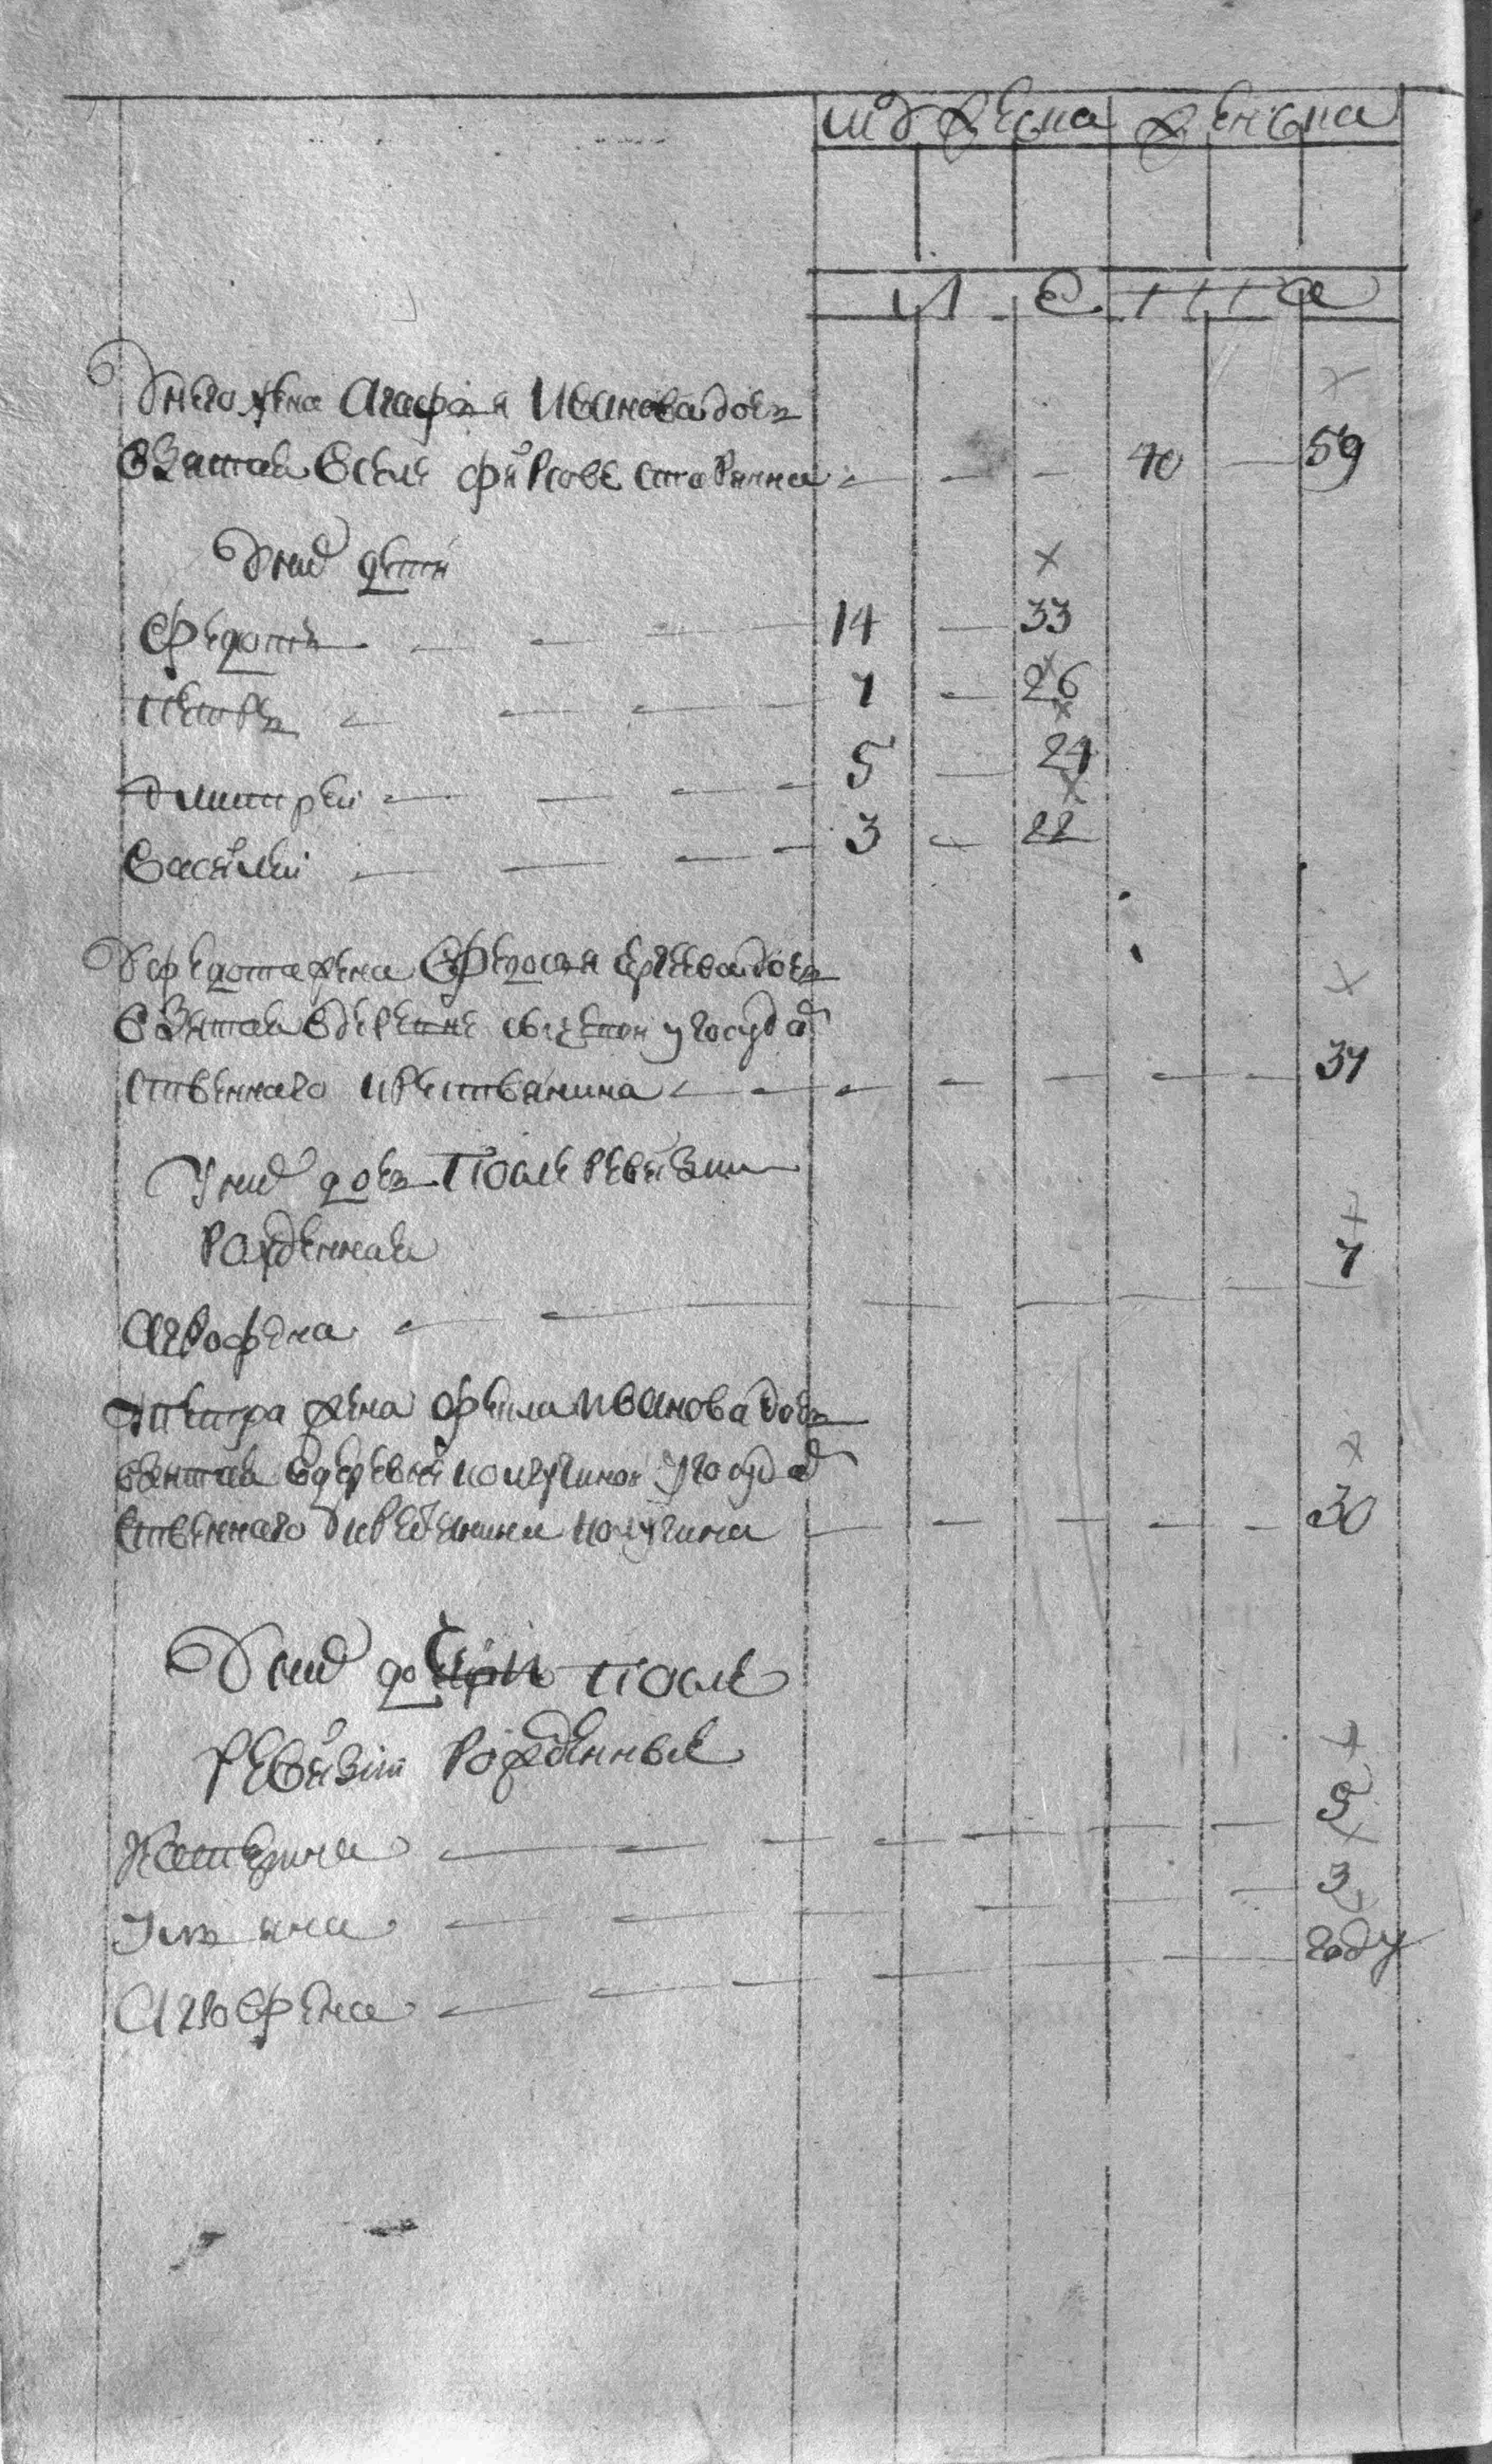 мужеска женска
л е т а
У него жена Агафья Иванова дочь
взятая в селе Фирсове старинная 40 59
У них дети
Федотъ 14 33
Петръ 7 26
Дмитрей 5 24
Василей 3 22
У Федота жена Федосья дочь
взятая в деревне у государ
ственнаго крестьянина 37
У них дочь после ревизии
рожденная 7
Аграфена
У Петра жена Иванова дочь
взятая в деревни у государ
ственнаго 30
У них дочери после
ревизии рожденные
Катерина 5
Ульяна 3
Аграфена году